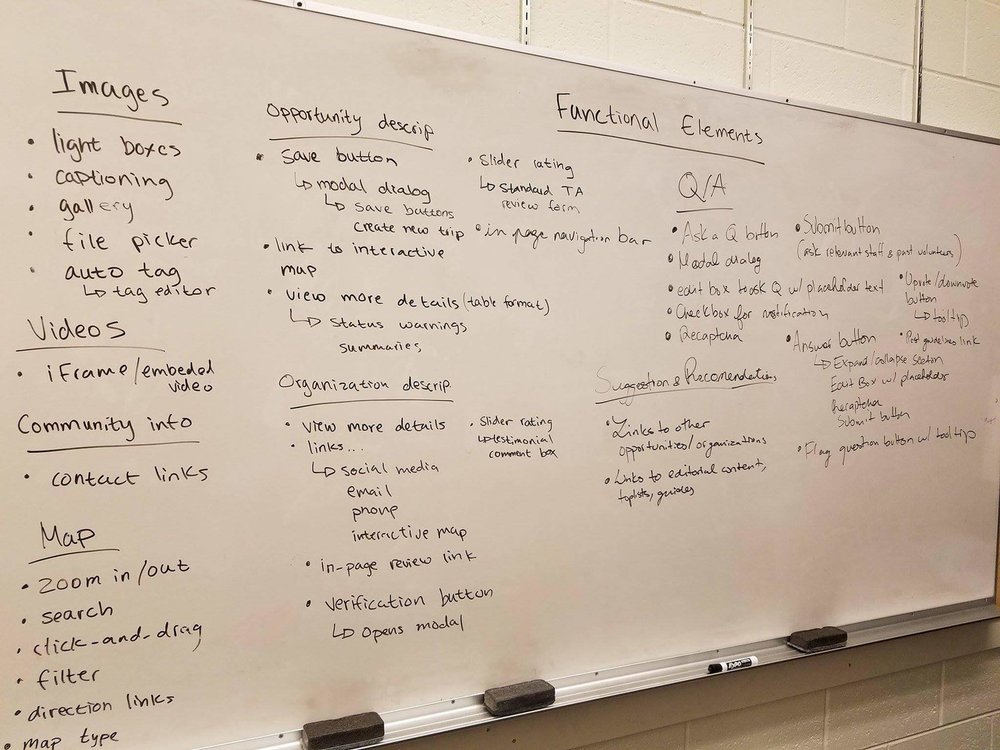 Functional Elements
Images
• light boxes
• captioning
• gallery
• file picker
• auto tag
↳ tag editor
Videos
• iFrame/embeded
video
Community info
• contact links
Map
• zoom in/out
• search
• click-and-drag
• filter
• direction links
• map type
Opportunity descrip
• Save button
↳ modal dialog
↳ save buttons
create new trip
• link to interactive
map
• view more details (table format)
↳ status warnings
summaries
• Slider rating
↳ Standard TA
review form
• in page navigation bar
Organization descrip
• view more details
• links...
↳ social media
email
phone
interactive map
• in-page review link
• verification button
↳ opens modal
• Slider rating
↳ testimonial
comment box
Q/A
• Ask a Q button
• Modal dialog
• edit box to ask Q w/ placeholder text
• Checkbox for notification
• Recaptcha
• Submit button
(ask relevant staff & past volunteers)
• Upvote/downvote
button
↳ tooltip
• Answer button
↳ Expand/collapse section
Edit Box w/ placeholder
Recaptcha
Submit button
• Post guidelines link
• Flag question button w/ tooltip
Suggestion & Recomendations
• Links to other
opportunities/organizations
• Links to editorial content,
toplists, guides
EXPO